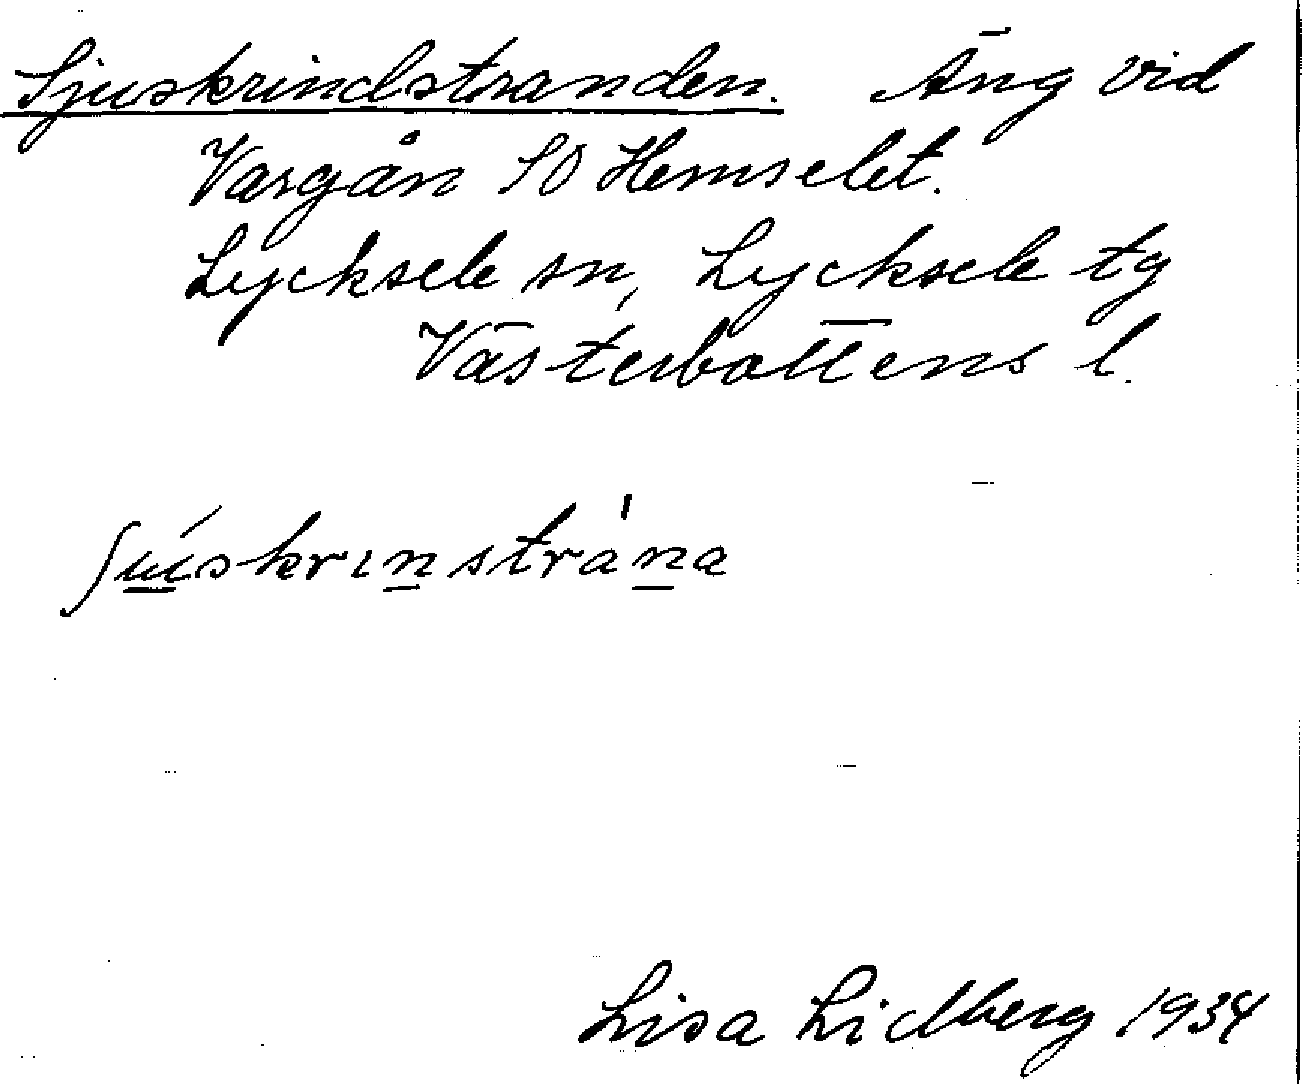 Sjuskrindstranden. Äng vid
Vargån SO Hemselet.
Lycksele sn, Lycksele tg
Västerbottens l.
ʃu̲úskrın̲stràn̲a
Lisa Lidberg 1934